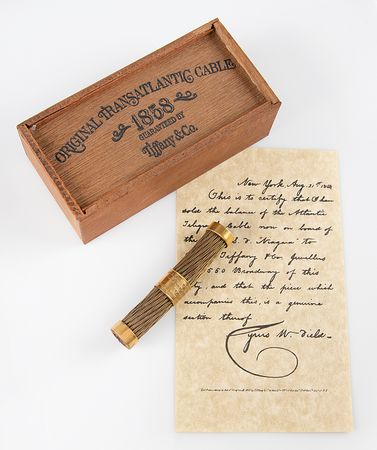 ORIGINAL TRANSATLANTIC CABLE
1858
GUARANTEED BY
Tiffany & Co.
New York Aug. 21st 1858
This is to certify that I have
sold the balance of the Atlantic
Telegraph Cable now on board of
the S. Niagara to
Tiffany & Co. Jewellers
550 Broadway of this
and that the piece which
accompanies this, is a genuine
section thereof
Cyrus W. Field